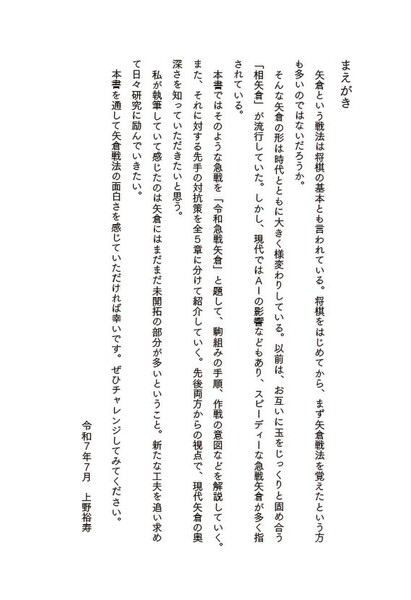 まえがき
矢倉という戦法は将棋の基本とも言われている。将棋をはじめてから、まず矢倉戦法を覚えたという方
も多いのではないだろうか。
そんな矢倉の形は時代とともに大きく様変わりしている。以前は、お互いに玉をじっくりと固め合う
「相矢倉」が流行していた。しかし、現代ではAIの影響などもあり、スピーディーな急戦矢倉が多く指
されている。
本書ではそのような急戦を「令和急戦矢倉」と題して、駒組みの手順、作戦の意図などを解説していく。
また、それに対する先手の対抗策を全5章に分けて紹介していく。先後両方からの視点で、現代矢倉の奥
深さを知っていただきたいと思う。
私が執筆していて感じたのは矢倉にはまだまだ未開拓の部分が多いということ。新たな工夫を追い求め
て日々研究に励んでいきたい。
本書を通して矢倉戦法の面白さを感じていただければ幸いです。ぜひチャレンジしてみてください。
令和7年7月　上野裕寿